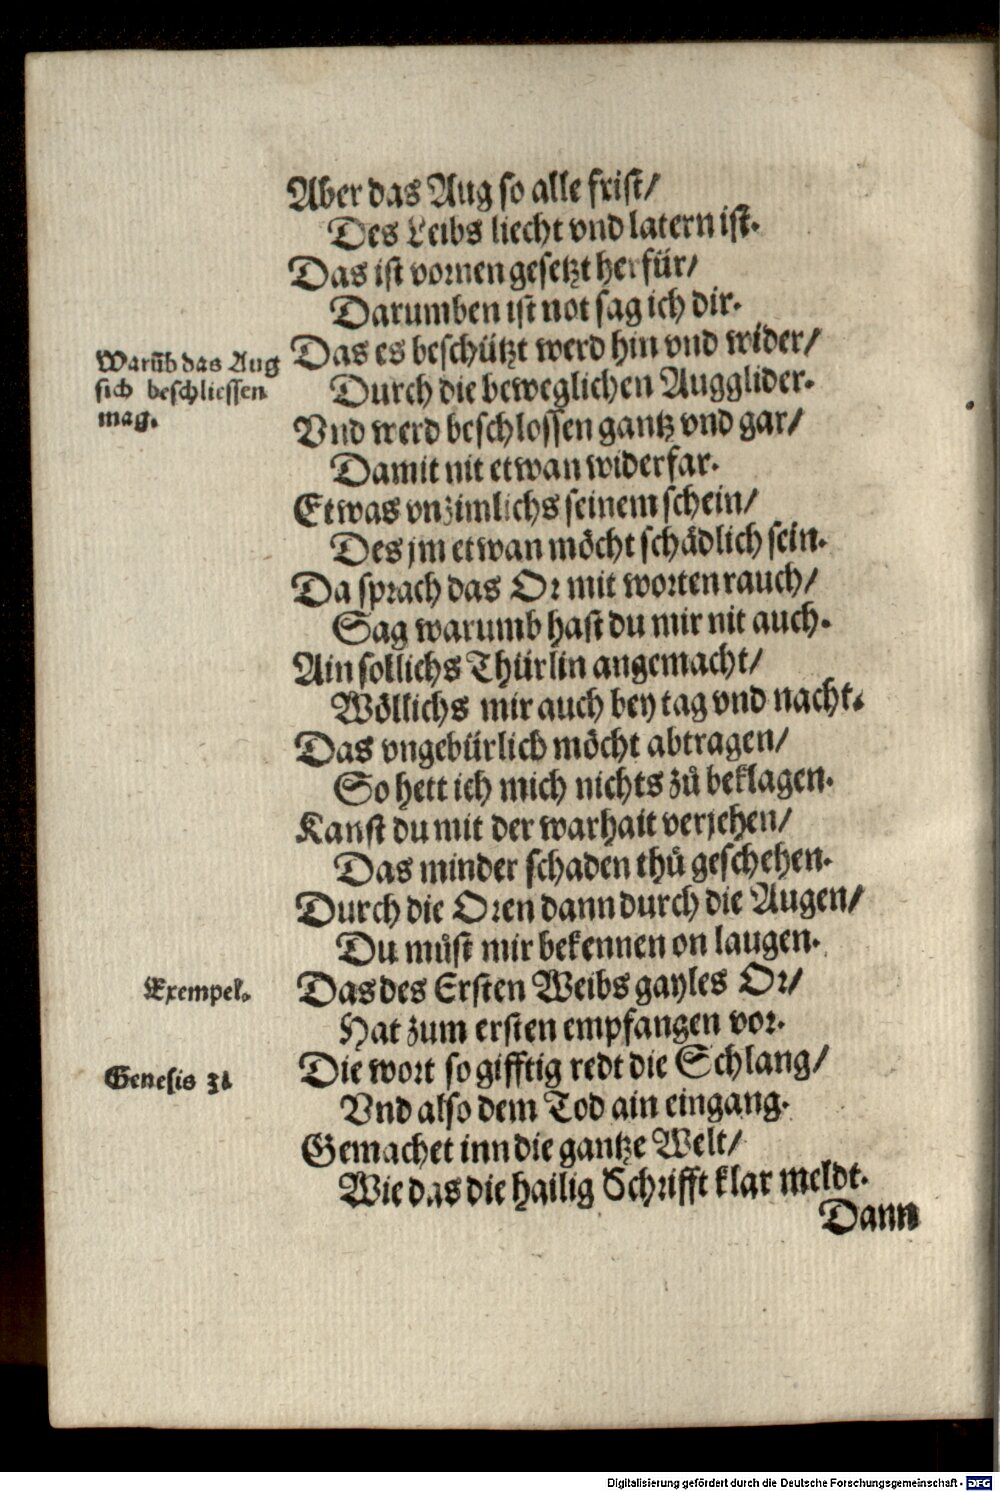 Aber das Aug so alle frist/
Des Leibs liecht vnd latern ist.
Das ist vornen gesetzt herfür/
Darumben ist not sag ich dir.
Das es beschützt werd hin vnd wider/
Durch die beweglichen Augglider.
Vnd werd beschlossen gantz vnd gar/
Damit nit etwan widerfar.
Etwas vnzimlichs seinem schein/
Des jm etwan möcht schädlich sein.
Da sprach das Or mit worten rauch/
Sag warumb hast du mir nit auch.
Ain sollichs Thürlin angemacht/
Wöllichs mir auch bey tag vnd nacht.
Das vngebürlich möcht abtragen/
So hett ich mich nichts zů beklagen.
Kanst du mit der warhait verjehen/
Das minder schaden thů geschehen.
Durch die Oren dann durch die Augen/
Du můst mir bekennen on laugen.
Das des Ersten Weibs gayles Or/
Hat zum ersten empfangen vor.
Die wort so gifftig redt die Schlang/
Vnd also dem Tod ain eingang.
Gemachet inn die gantze Welt/
Wie das die hailig Schrifft klar meldt.
Dann
Warūb das Aug
sich beschliessen
mag.
Exempel.
Genesis 3.
Digitalisierung gefördert durch die Deutsche Forschungsgemeinschaft - DFG